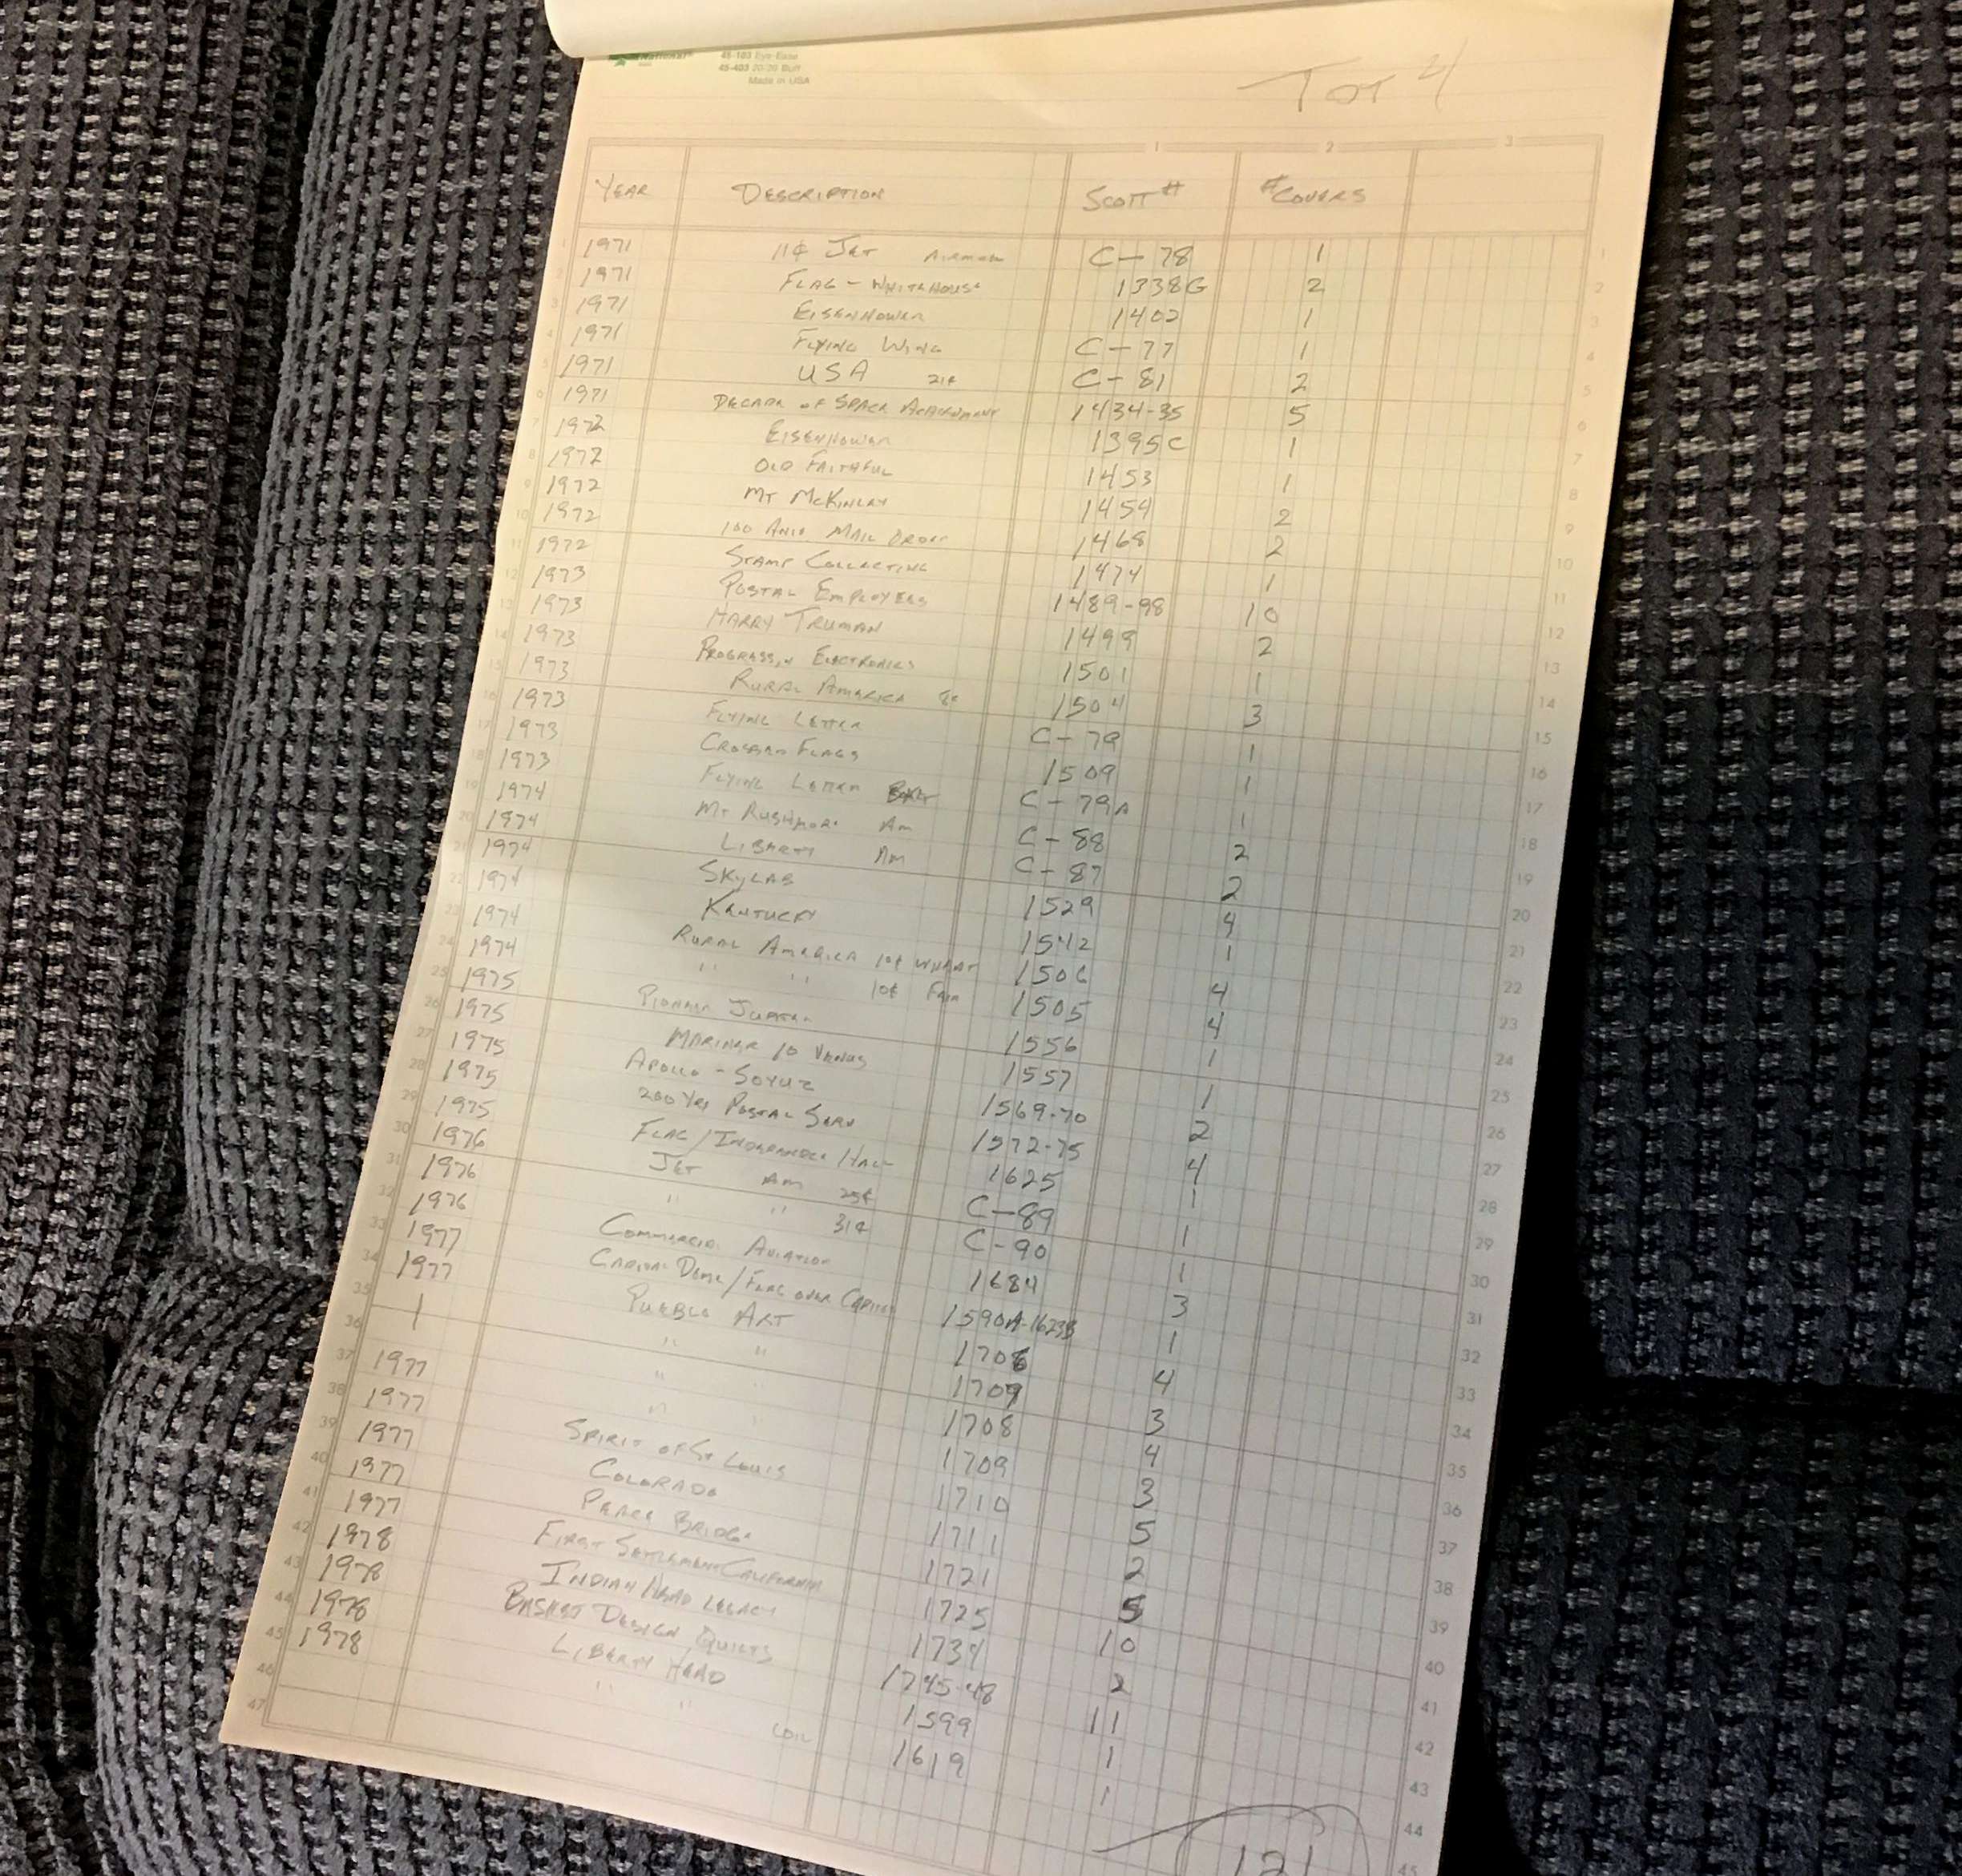 National
45-103 Eye-Ease
45-403 20/20 Buff
Made in USA
TOT 4
1 2 3
YEAR DESCRIPTION SCOTT # # COVERS
1 1971 11¢ JET AIRMAIL C-78 1 1
2 1971 FLAG - WHITEHOUSE 1338G 2 2
3 1971 EISENHOWER 1402 1 3
4 1971 FLYING WING C-77 1 4
5 1971 USA 21¢ C-81 2 5
6 1971 DECADE OF SPACE ACHIEVEMENT 1434-35 5 6
7 1972 EISENHOWER 1395C 1 7
8 1972 OLD FAITHFUL 1453 1 8
9 1972 MT MCKINLEY 1454 2 9
10 1972 100 ANIV MAIL ORDER 1468 2 10
11 1972 STAMP COLLECTING 1474 1 11
12 1973 POSTAL EMPLOYEES 1489-98 10 12
13 1973 HARRY TRUMAN 1499 2 13
14 1973 PROGRESS IN ELECTRONICS 1501 1 14
15 1973 RURAL AMERICA 8¢ 1504 3 15
16 1973 FLYING LETTER C-79 1 16
17 1973 CROSSED FLAGS 1509 1 17
18 1973 FLYING LETTER BKLT C-79A 1 18
19 1974 MT RUSHMORE AM C-88 2 19
20 1974 LIBERTY AM C-87 2 20
21 1974 SKYLAB 1529 4 21
22 1974 KENTUCKY 1542 1 22
23 1974 RURAL AMERICA 10¢ WHEAT 1506 4 23
24 1974 " " 10¢ FAIR 1505 4 24
25 1975 PIONEER JUPITER 1556 1 25
26 1975 MARINER 10 VENUS 1557 1 26
27 1975 APOLLO - SOYUZ 1569-70 2 27
28 1975 200 YRS POSTAL SERV 1572-75 4 28
29 1975 FLAG / INDEPENDENCE HALL 1625 1 29
30 1976 JET AM 25¢ C-89 1 30
31 1976 " " 31¢ C-90 1 31
32 1976 COMMERCIAL AVIATION 1684 3 32
33 1977 CAPITOL DOME / FLAG OVER CAPITOL 1590A-1623B 1 33
34 1977 PUEBLO ART 1706 4 34
35 | " " 1707 3 35
36 " " 1708 4 36
37 1977 " " 1709 3 37
38 1977 SPIRIT OF ST LOUIS 1710 5 38
39 1977 COLORADO 1711 2 39
40 1977 PEACE BRIDGE 1721 5 40
41 1977 FIRST SETTLEMENT CALIFORNIA 1725 10 41
42 1978 INDIAN HEAD LEGACY 1734 2 42
43 1978 BASKET DESIGN QUILTS 1745-48 11 43
44 1978 LIBERTY HEAD 1599 1 44
45 1978 " " COIL 1619 1 45
46
47
121